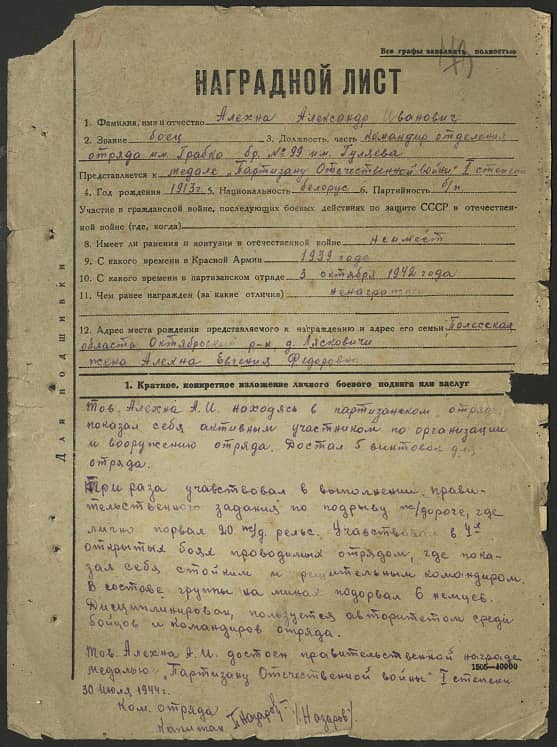 Все графы заполнять полностью
НАГРАДНОЙ ЛИСТ
1. Фамилия, имя и отчество Алехна Александр Иванович
2. Звание боец 3. Должность, часть командир отделения
отряда им. Грабко бр. № 99 им. Гуляева
Представляется к медале "Партизану Отечественной войны" I степени
4. Год рождения 1913 г. 5. Национальность белорус 6. Партийность б/п
Участие в гражданской войне, последующих боевых действиях по защите СССР в отечествен-
ной войне (где, когда)
8. Имеет ли ранения и контузии в отечественной войне не имеет
9. С какого времени в Красной Армии 1939 года
10. С какого времени в партизанском отряде 3 октября 1942 года
11. Чем ранее награжден (за какие отличия) ненагражден
12. Адрес места рождения представляемого к награждению и адрес его семьи Полесская
область Октябрьский р-н д. Лясковичи
жена Алехна Евгения Федоровна
Для подшивки
1. Краткое, конкретное изложение личного боевого подвига или заслуг
Тов. Алехна А.И. находясь в партизанском отряде
показал себя активным участником по организации
и вооружению отряда. Достал 5 винтовок для
отряда.
Три раза учавствовал в выполнении прави-
тельственного задания по подрыву ж/дороге, где
лично порвал 20 ж/д. рельс. Учавствовал в
открытых боях проводимых отрядом, где пока-
зал себя стойким и решительным командиром.
В составе группы на минах подорвал 6 немцев.
Дисциплинирован, пользуется авторитетом среди
бойцов и командиров отряда.
Тов. Алехна А.И. достоен правительственной награде
медалью "Партизану Отечественной войны" I степени
1505—40000
30 июля 1944 г.
Ком. отряда
Капитан /Назаров/